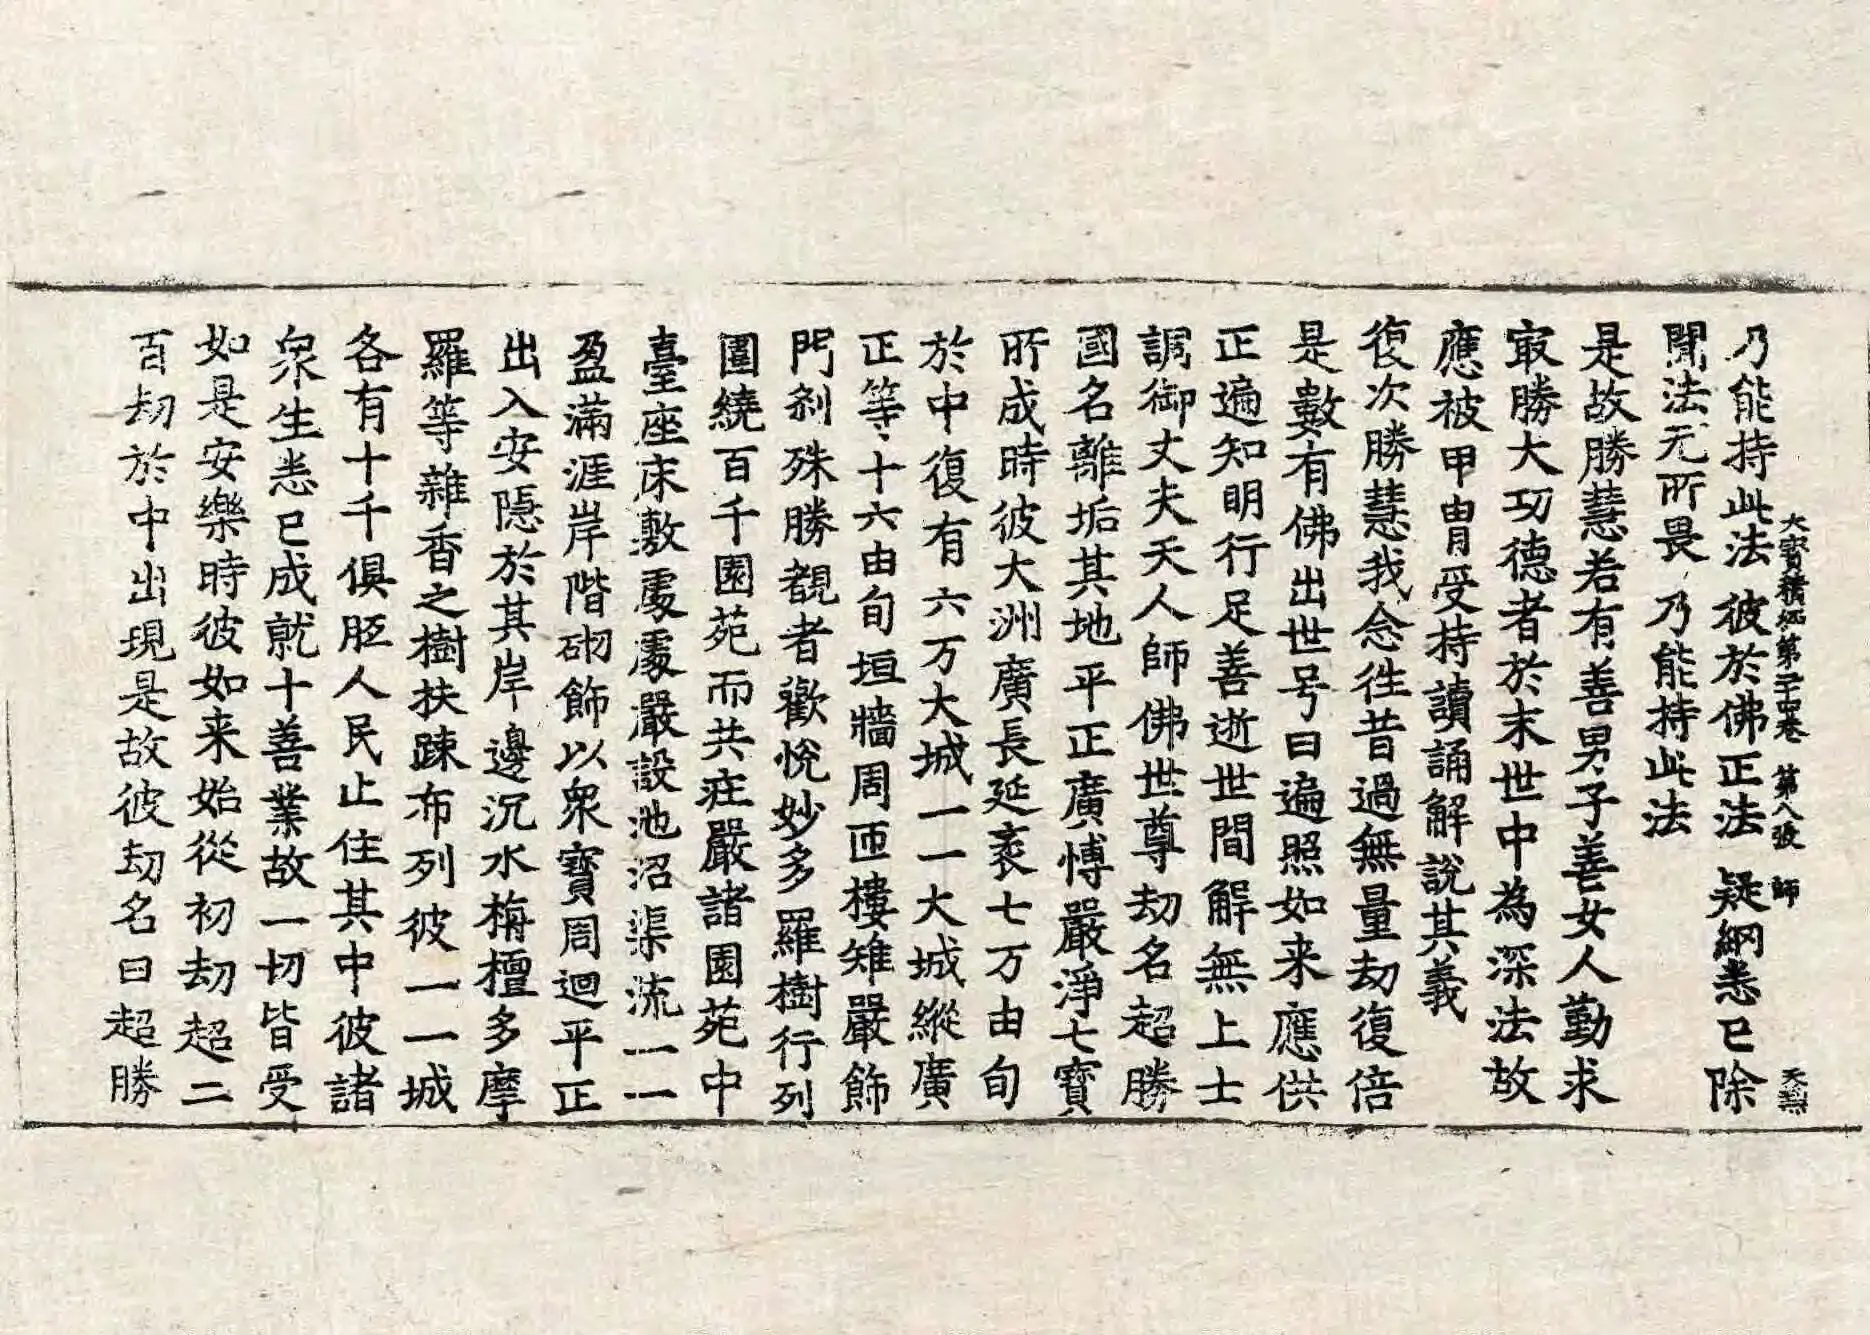 大寶積經第二十四卷 第八張 師
乃能持此法 彼於佛正法 疑網悉已除
聞法无所畏 乃能持此法
是故勝慧若有善男子善女人勤求
㝡勝大功德者於末世中為深法故
應被甲冑受持讀誦解說其義
復次勝慧我念往昔過無量劫復倍
是數有佛出世号曰遍照如来應供
正遍知明行足善逝世間解無上士
調御丈夫天人師佛世尊劫名超勝
國名離垢其地平正廣愽嚴淨七寶
所成時彼大洲廣長延袤七万由旬
於中復有六万大城一一大城縱廣
正等十六由旬垣牆周匝樓雉嚴飾
門刹殊勝覩者歡悅妙多羅樹行列
圍繞百千園苑而共庄嚴諸園苑中
臺座床敷處處嚴設池沼渠流一一
盈滿涯岸階砌飾以眾寶周迴平正
出入安隱於其岸邊沉水栴檀多摩
羅等雜香之樹扶踈布列彼一一城
各有十千俱胝人民止住其中彼諸
眾生悉已成就十善業故一切皆受
如是安樂時彼如来始從初劫超二
百劫於中出現是故彼劫名曰超勝